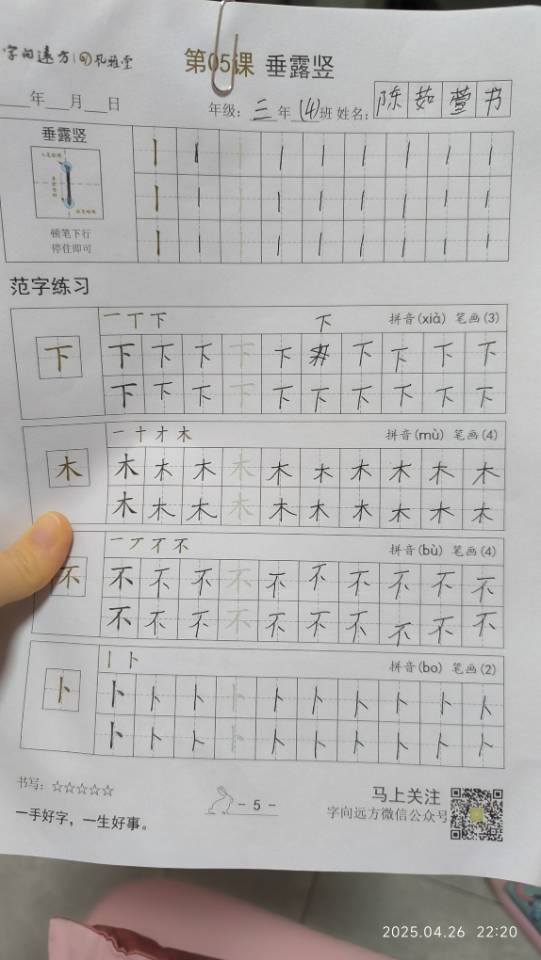 字向远方|
第05课 垂露竖
年 月 日
年级: 三 年 (4) 班 姓名: 陈茹萱书
垂露竖
顿笔下行
停住即可
范字练习
一 丅 下 下 拼音(xià) 笔画(3)
下 下 下 下 下 下 下 下 下 下
下 下 下 下 下 下 下 下 下 下 下
一 十 才 木 拼音(mù) 笔画(4)
木 木 木 木 木 木 木 木 木 木 木
木 木 木 木 木 木 木 木 木 木
一 丆 不 不 拼音(bù) 笔画(4)
不 不 不 不 不 不 不 不 不 不 不
不 不 不 不 不 不 不 不 不 不
丨 卜 拼音(bo) 笔画(2)
卜 卜 卜 卜 卜 卜 卜 卜 卜 卜 卜
卜 卜 卜 卜 卜 卜 卜 卜 卜 卜
书写: ☆☆☆☆☆
- 5 -
马上关注
一手好字，一生好事。
字向远方微信公众号
2025.04.26 22:20